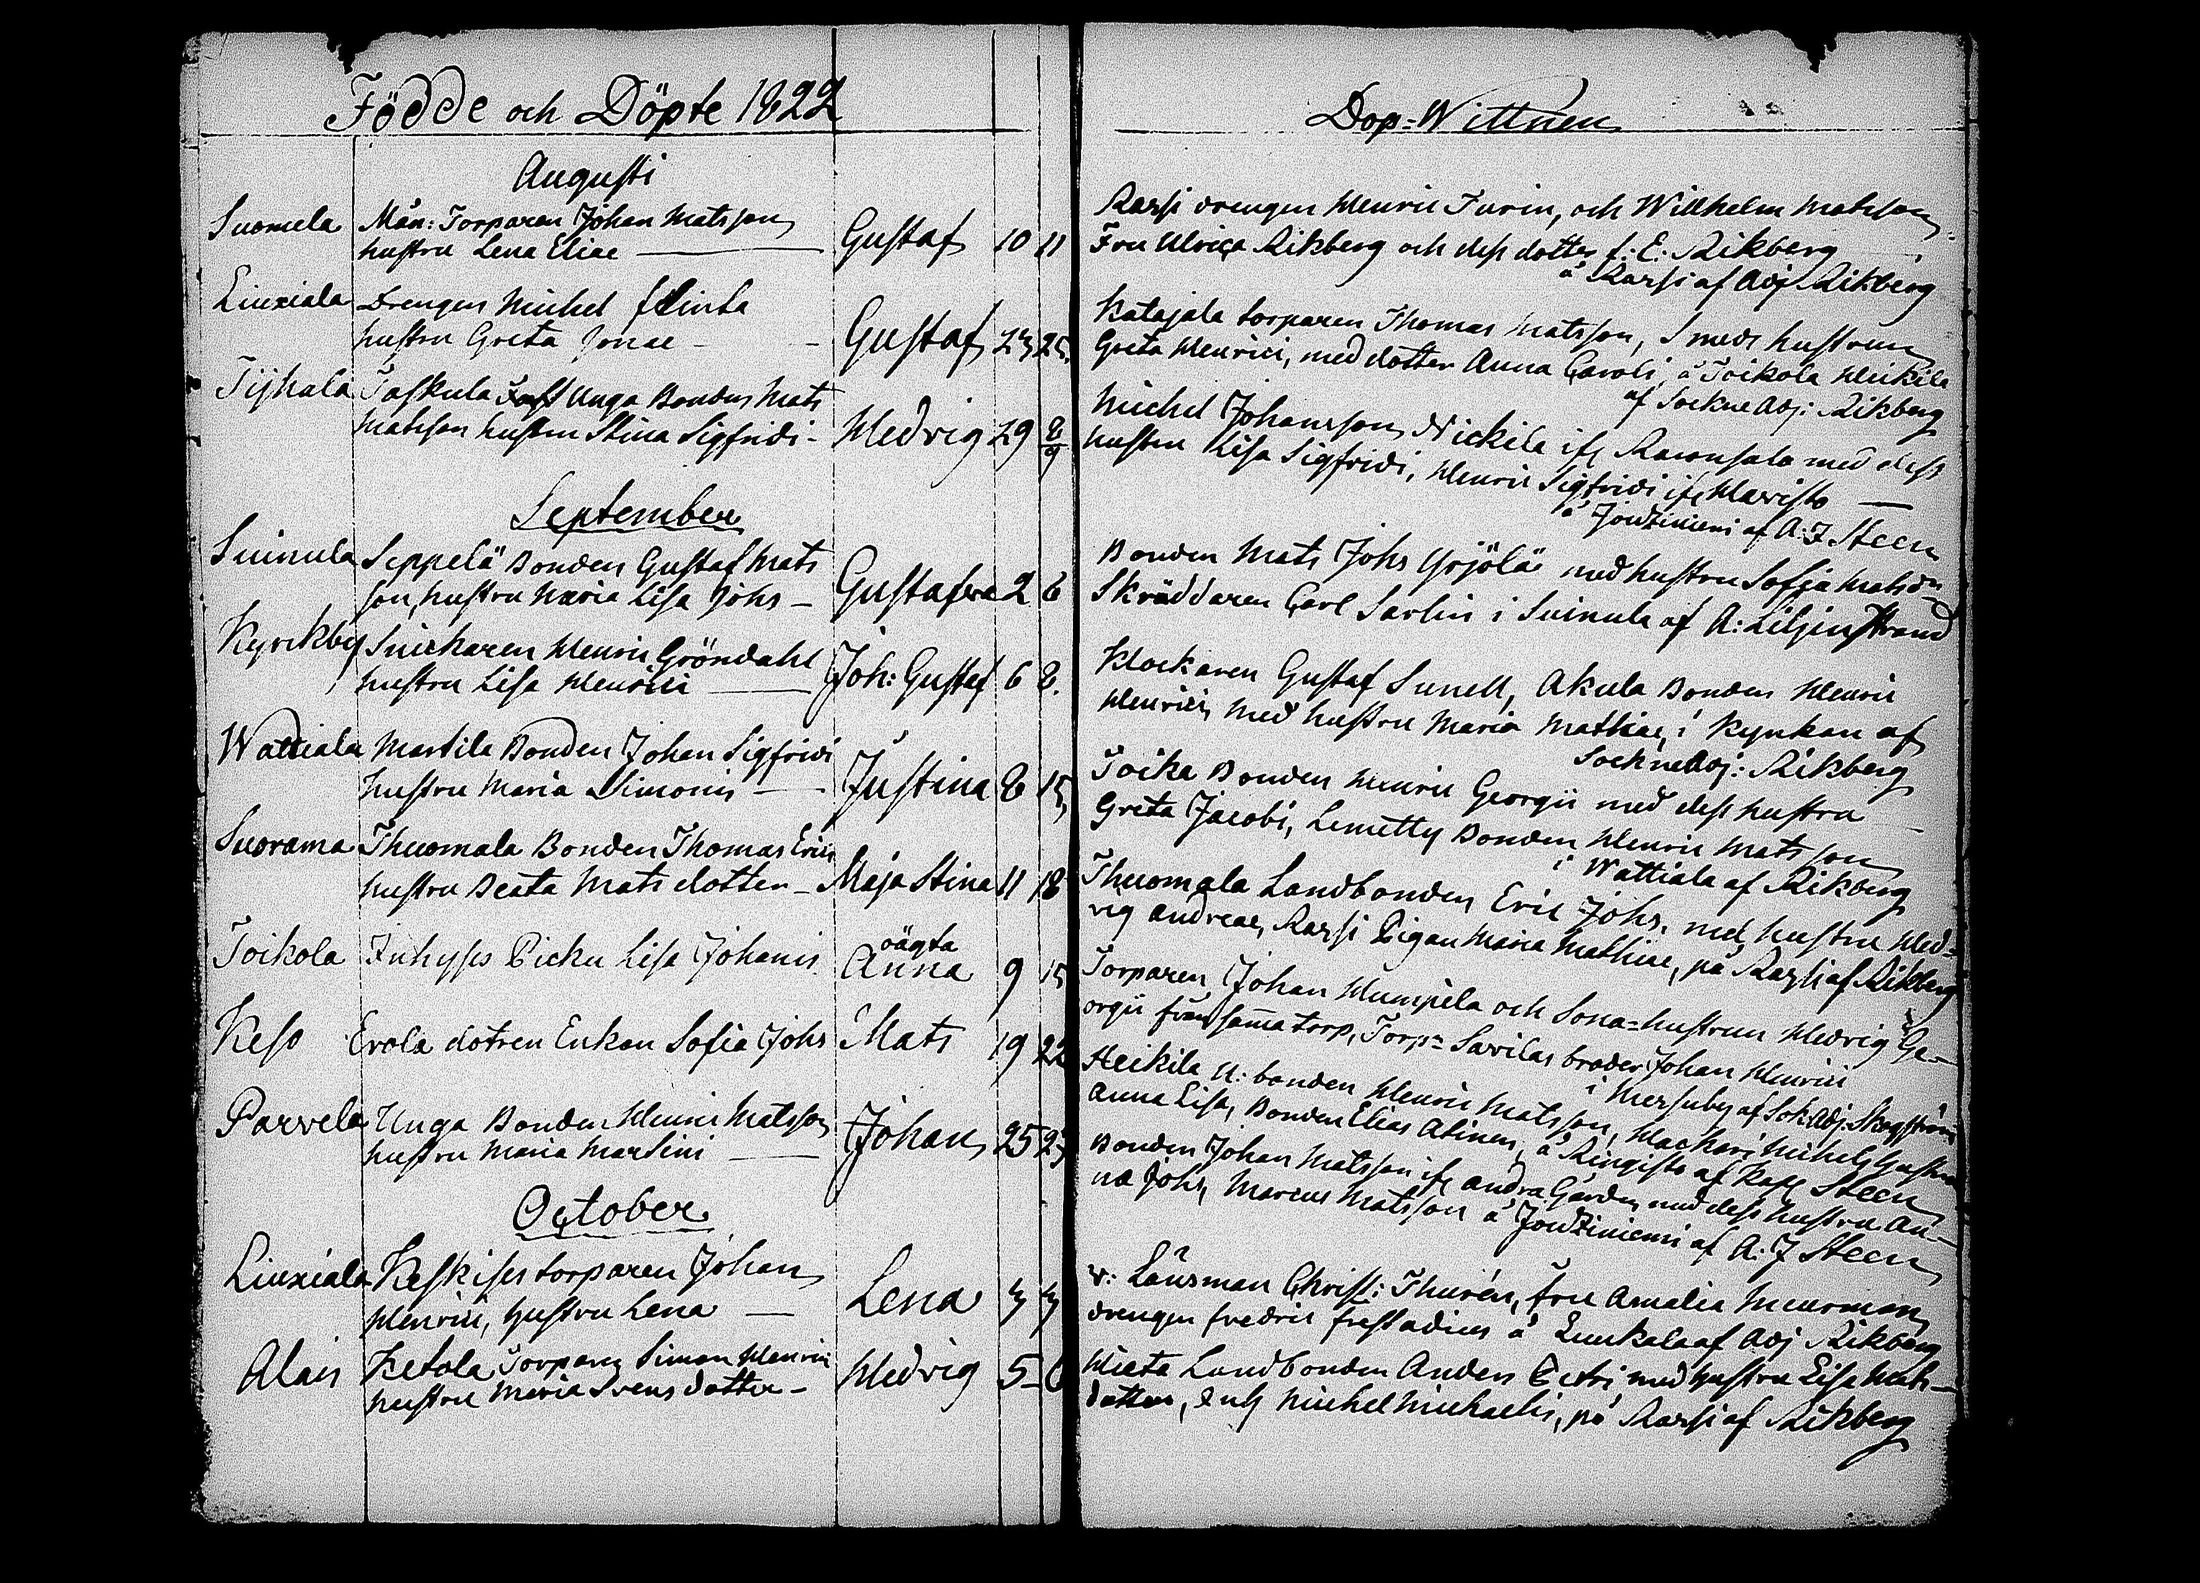 Födde och Döpte 1822
Augusti
Suomela Mån: Torparen Johan Matsson
hustru Lena Eliae Gustaf 10 11
Liuxiala Drengen Michel
hustru Greta Jonae Gustaf 23 25.
Tijhala Taskula Unga Bonden Mats
Matsson hustru Stina Sigfridi Hedvig 29 8/9
September
Suinula Seppelä Bonden Gustaf Mats
son, hustru Maria Lisa Johs Gustafva 2 6
Kyrckby Snickaren Henric Gröndahl
hustru Lisa Henrici Joh: Gustaf 6 8.
Wattiala Martila Bonden Johan Sigfridi
hustru Maria Simonis Justina 8 15
Suorama Thuomala Bonden Thomas Erics
hustru Beata Mats dotter Maja Stina 11 18
Toikola Inhyses Pickn Lisa Johanis oägta Anna 9 15
Keso Erola dotren Enkan Sofia Johs Mats 19 22
Parvela Unga Bonden Henric Matsson
hustru Maria Martini Johan 25 29
October
Liuxiala Keskises torparen Johan
Henrici, hustru Lena Lena 3 3
Alais Ketola Torparen Simon Henrici
hustru Maria Svens dotter Hedvig 5 6
Dop-Wittnen
Rarsi drengen Henric Turin, och Willhelm Matsson
Fru Ulrica Rikberg och dess dotter f: E: Rikberg
å Rarsi af Adj Rikberg
Katajala torparen Thomas Matsson, Smeds hustrun
Greta Henrici, med dotter Anna Caroli, å Toikola Heikilä
af SockneAdj: Rikberg
Michel Johansson Nickila ifr med dess
hustru Lisa Sigfridi, Henric Sigfridi ifr Haristo
å Joutziniemi af A: J Steen
Bonden Mats Johs Yrjölä med hustru Sofia Matsdr
Skräddaren Carl Sarlin i Suinula af A: Liljenstrand
Klockaren Gustaf Sunell, Akula Bonden Henric
Henrici med hustru Maria Mathiae, i Kyrkan af
SockneAdj: Rikberg
Toika Bonden Henric Georgii med dess hustru
Greta Jacobi, Lemetty Bonden Henric Matsson
i Wattiala af Rikberg
Thuomala Landbonden Eric Johs, med hustru Hed-
vig Andreae, Rarsi Pigan Maria Mathiae, på Rarsi af Rikberg
Torparen Johan Humpila och Sona-hustrun Hedvig Ge-
orgii från samma torp, Torp= Savilas broder Johan Henrici
i Mersuby af Sok Adj: Skogström
Heikila U: bonden Henric Matsson, Michels hustru
Anna Lisa, Bonden Elias Alinen, å Ringisto af Kapl Steen
Bonden Johan Matsson ifr andra Gården med dess hustru An-
na Johs, Marcus Matsson å Joutziniemi af A: J Steen
v: Länsman Christ: Thurén, fru Amalia Meurman
drengen fredric frestadius å Liuxiala af Adj Rikberg
Hieta Landbonden Anders Petri med hustru Lisa Mats-
dotter, Inh Michel Michaelis, på Rarsi af Rikberg